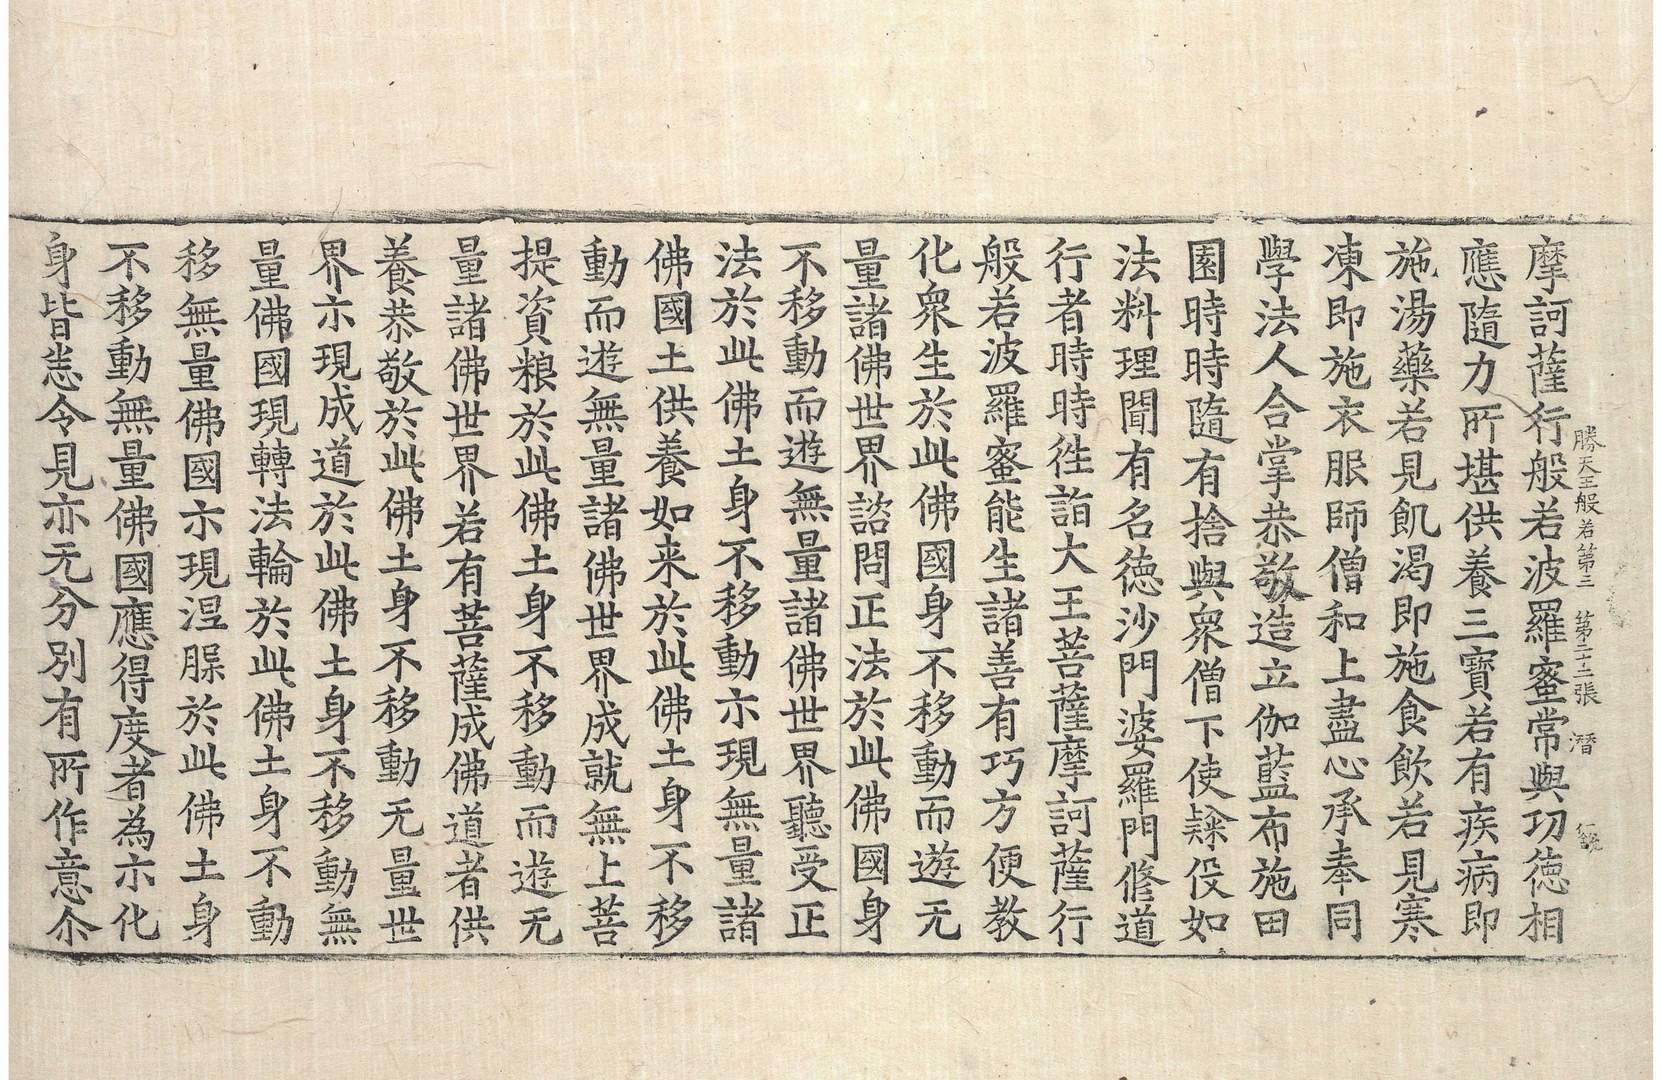 勝天王般若第三　第二十三張　潛
摩訶薩行般若波羅蜜常與功徳相
應隨力所堪供養三寶若有疾病即
施湯藥若見飢渴即施食飲若見寒
凍即施衣服師僧和上盡心承奉同
學法人合掌恭敬造立伽藍布施田
園時時隨有捨與衆僧下使𨽻伇如
法料理聞有名徳沙門婆羅門修道
行者時時徃詣大王菩薩摩訶薩行
般若波羅蜜能生諸善有巧方便教
化衆生於此佛國身不移動而遊无
量諸佛世界諮問正法於此佛國身
不移動而遊無量諸佛世界聽受正
法於此佛土身不移動尓現無量諸
佛國土供養如来於此佛土身不移
動而遊無量諸佛世界成就無上菩
提資粮於此佛土身不移動而遊无
量諸佛世界若有菩薩成佛道者供
養恭敬於此佛土身不移動无量世
界尓現成道於此佛土身不移動無
量佛國現轉法輪於此佛土身不動
移無量佛國尓現涅槃於此佛土身
不移動無量佛國應得度者為尓化
身皆悉令見亦无分別有所作意尒